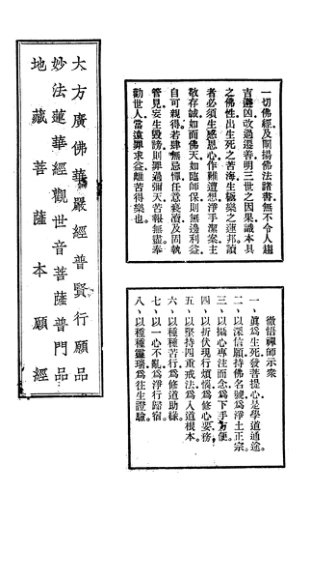 一切佛經及闡揚佛法諸書無不令人趨
吉避凶改過遷善明三世之因果識本具
之佛性出生死之苦海生極樂之蓮邦讀
者必須生感恩心作難遭想淨手潔案主
敬存誠如面佛天如臨師保則無邊利益
自可親得若肆無忌憚任意褻瀆及固執
管見妄生毀謗則罪過彌天苦報無盡奉
勸世人當遠罪求益離苦得樂也。
徹悟禪師示衆
一、眞爲生死發菩提心是學道通途。
二、以深信願持佛名號爲淨土正宗。
三、以攝心專注而念爲下手方便。
四、以折伏現行煩惱爲修心要務。
五、以堅持四重戒法爲入道根本。
六、以種種苦行爲修道助緣。
七、以一心不亂爲淨行歸宿。
八、以種種靈瑞爲往生證驗。
大方廣佛華嚴經普賢行願品
妙法蓮華經觀世音菩薩普門品
地藏菩薩本願經